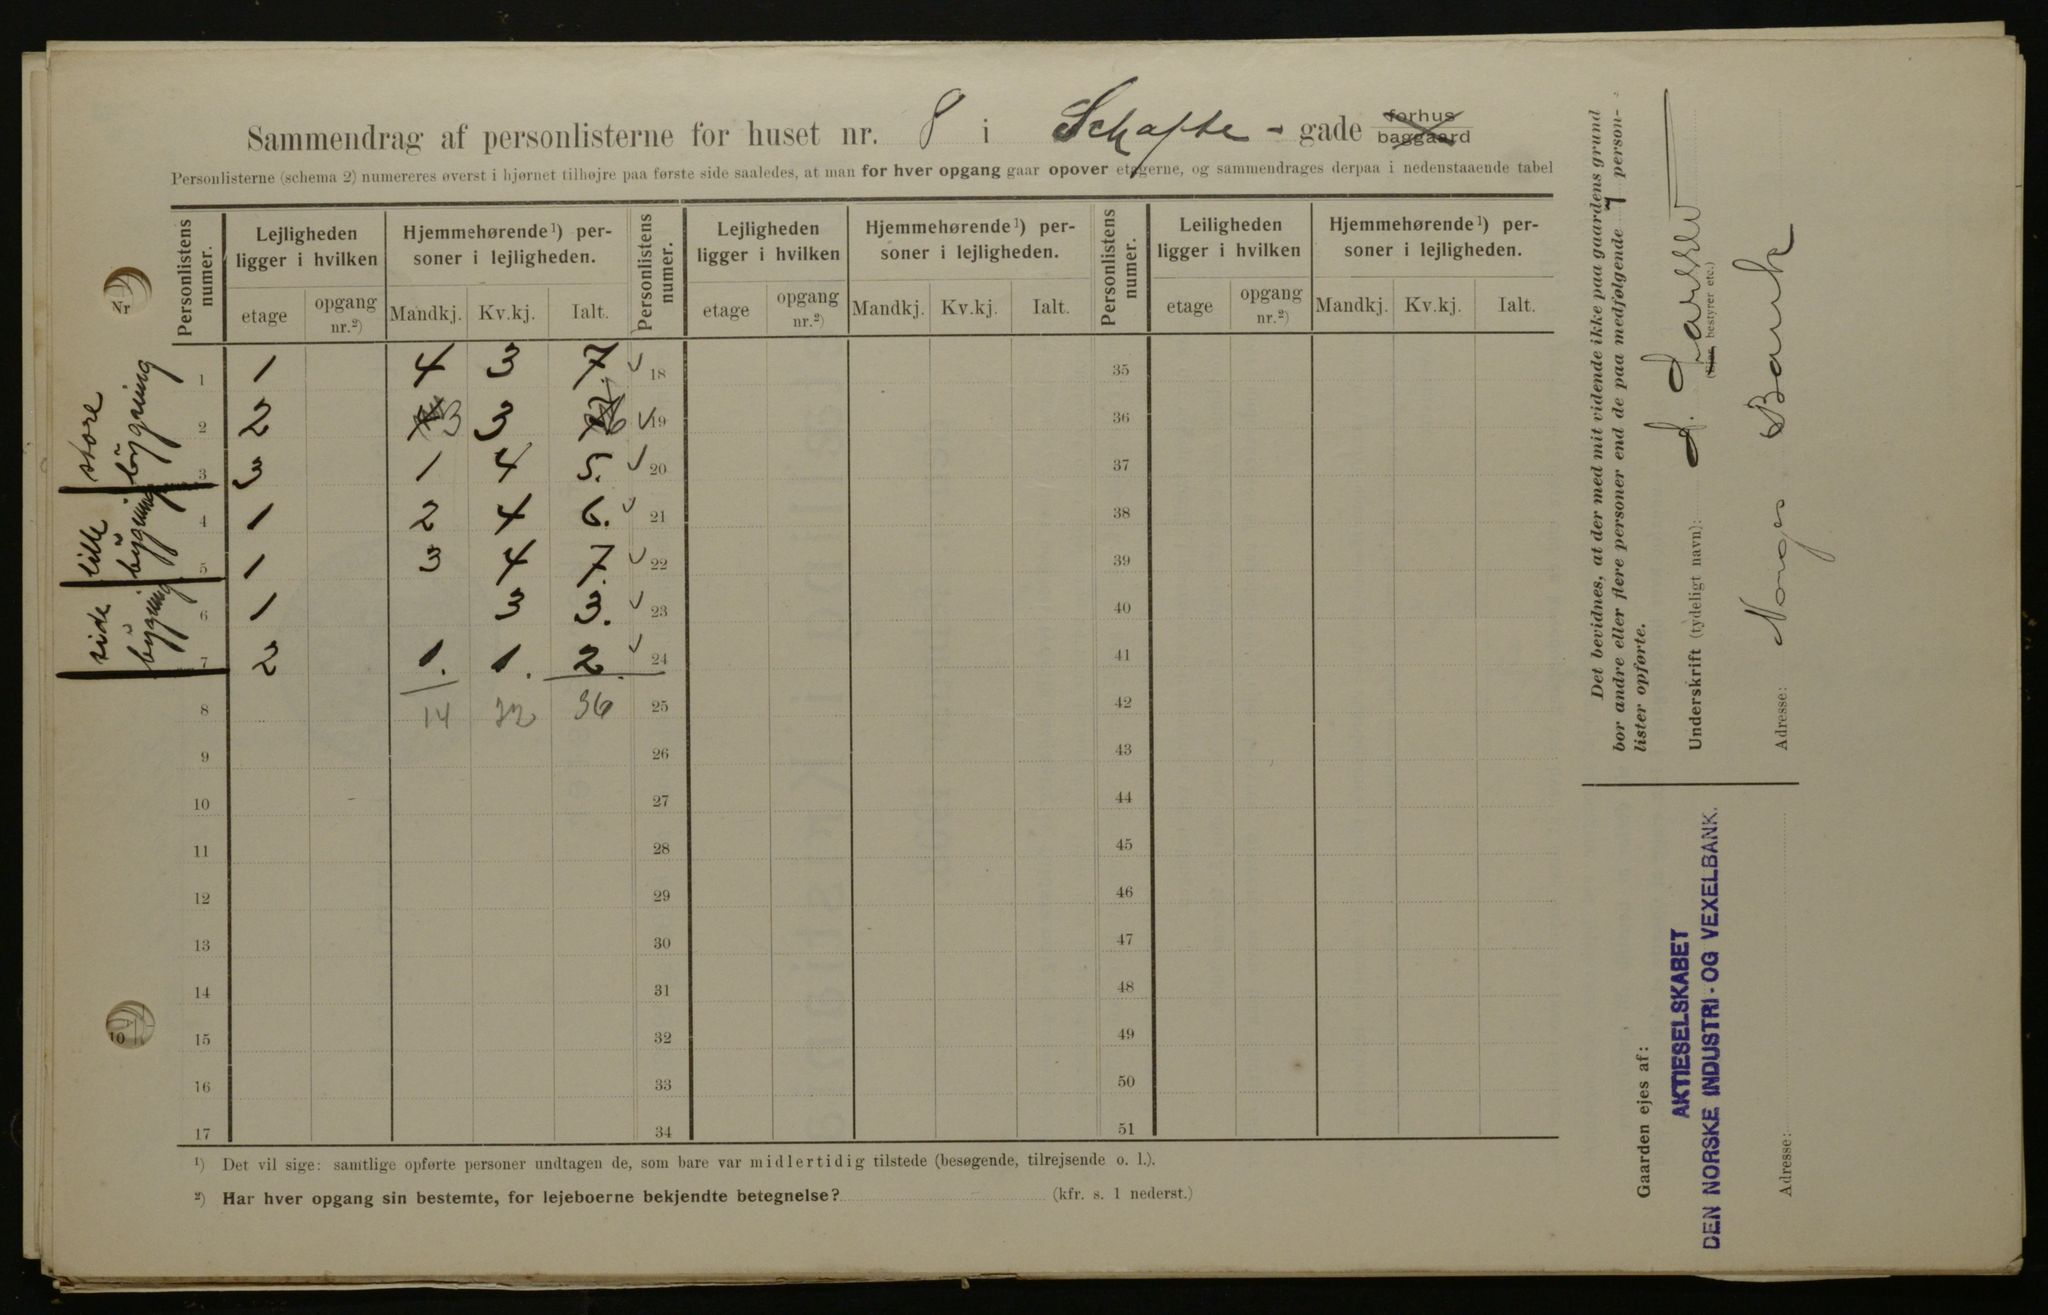 Sammendrag af personlisterne for huset nr. 8 i Schafte - gade forhus baggaard
Personlisterne (schema 2) numereres øverst i hjørnet tilhøjre paa første side saaledes, at man for hver opgang gaar opover etagerne, og sammendrages derpaa i nedenstaaende tabel
Personlistens numer. Lejligheden ligger i hvilken Hjemmehørende ¹) personer i lejligheden. Personlistens numer. Lejligheden ligger i hvilken Hjemmehørende ¹) personer i lejligheden. Personlistens numer. Leiligheden ligger i hvilken Hjemmehørende ¹) personer i lejligheden.
etage opgang nr.²) Mandkj. Kv.kj. Ialt. etage opgang nr.²) Mandkj. Kv.kj. Ialt. etage opgang nr.²) Mandkj. Kv.kj. Ialt.
store bygning
lille bygning
side bygning
1 1 4 3 7 18 35
2 2 3 3 6 19 36
3 3 1 4 5. 20 37
4 1 2 4 6. 21 38
5 1 3 4 7. 22 39
6 1 3 3. 23 40
7 2 1. 1. 2. 24 41
8 14 22 36 25 42
9 26 43
10 27 44
11 28 45
12 29 46
13 30 47
14 31 48
15 32 49
16 33 50
17 34 51
¹) Det vil sige: samtlige opførte personer undtagen de, som bare var midlertidig tilstede (besøgende, tilrejsende o. l.).
²) Har hver opgang sin bestemte, for lejeboerne bekjendte betegnelse? (kfr. s. 1 nederst.)
Det bevidnes, at der med mit vidende ikke paa gaardens grund
bor andre eller flere personer end de paa medfølgende 7 person-
lister opførte.
Underskrift (tydeligt navn): J. Larsen
(Ejer, bestyrer etc.)
Adresse: Norges Bank
Gaarden ejes af:
AKTIESELSKABET
DEN NORSKE INDUSTRI- OG VEXELBANK.
Adresse:
Nr
10